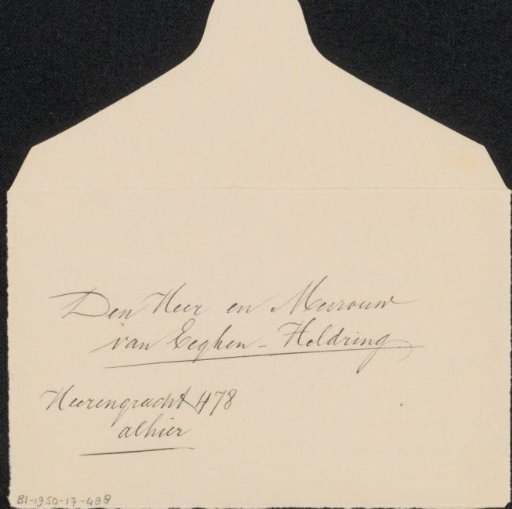 Den Heer en Mevrouw
van Eeghen - Heldring
Heerengracht 478
alhier
BI-1950-17-438